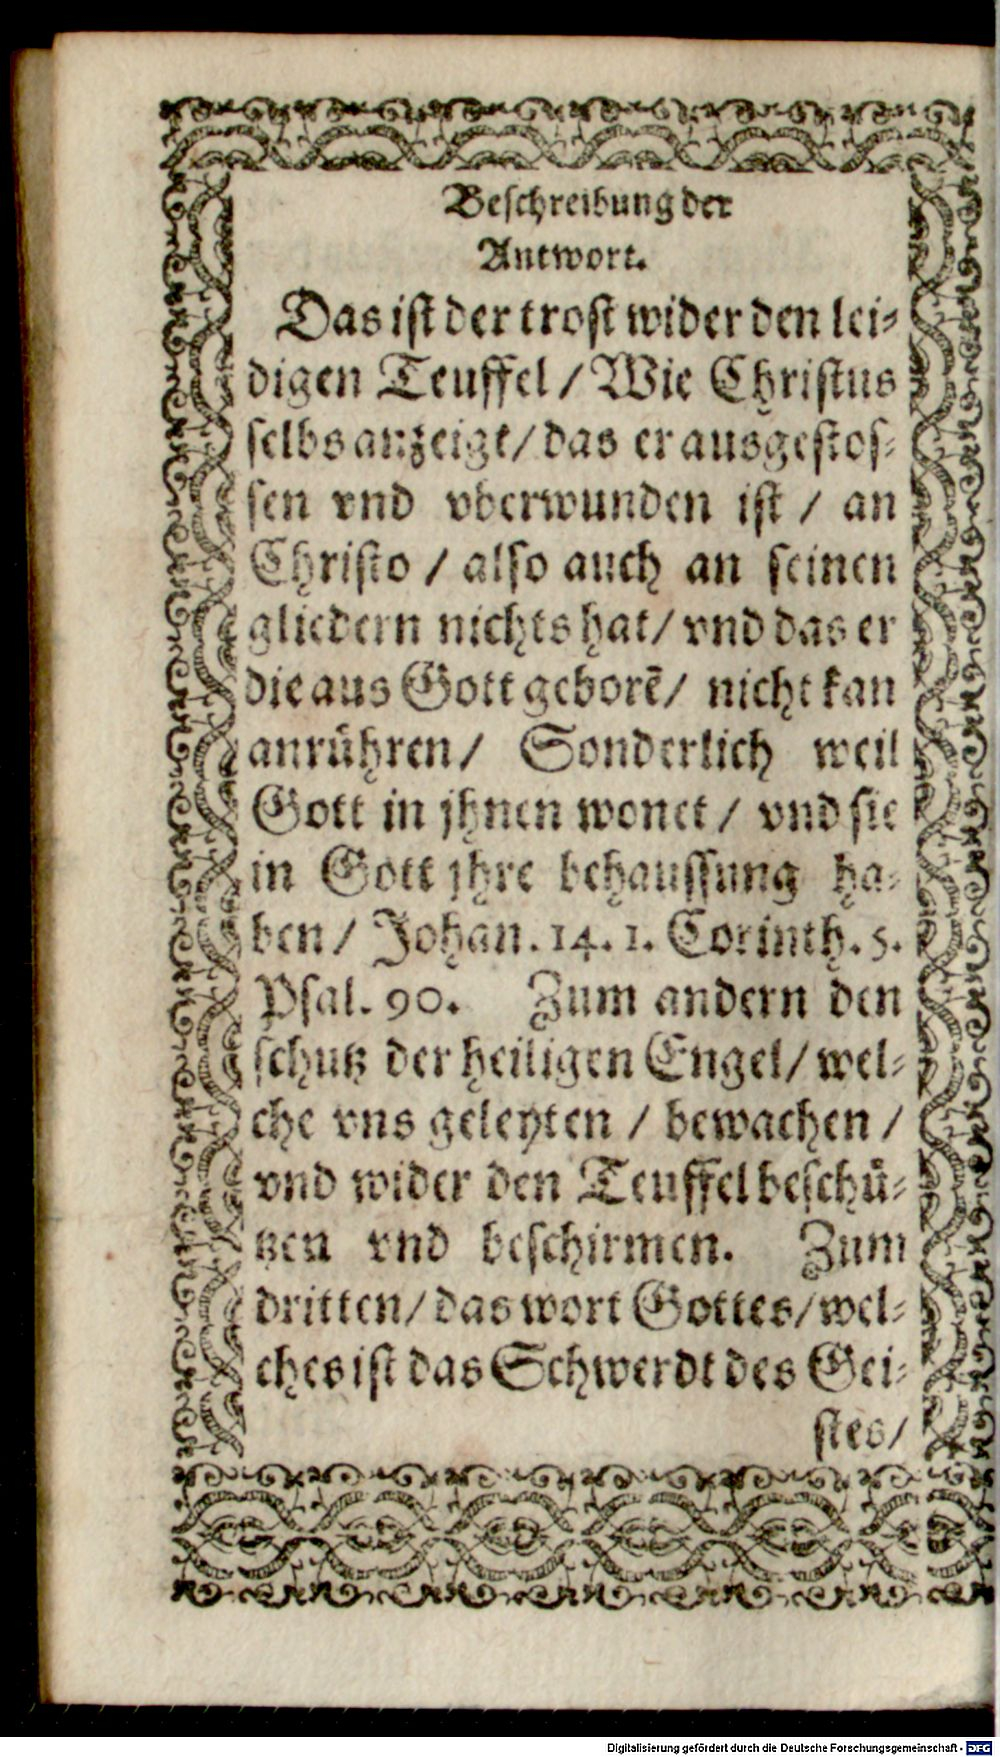 Beschreibung der
Antwort.
Das ist der trost wider den lei-
digen Teuffel / Wie Christus
selbs anzeigt / das er ausgestos-
sen vnd vberwunden ist / an
Christo / also auch an seinen
gliedern nichts hat / vnd das er
die aus Gott geborē / nicht kan
anrühren / Sonderlich weil
Gott in jhnen wonet / vnd sie
in Gott jhre behaussung ha-
ben / Johan. 14. 1. Corinth. 5.
Psal. 90. Zum andern den
schutz der heiligen Engel / wel-
che vns geleyten / bewachen /
vnd wider den Teuffel beschü-
tzen vnd beschirmen. Zum
dritten / das wort Gottes / wel-
ches ist das Schwerdt des Gei-
stes /
Digitalisierung gefördert durch die Deutsche Forschungsgemeinschaft - DFG